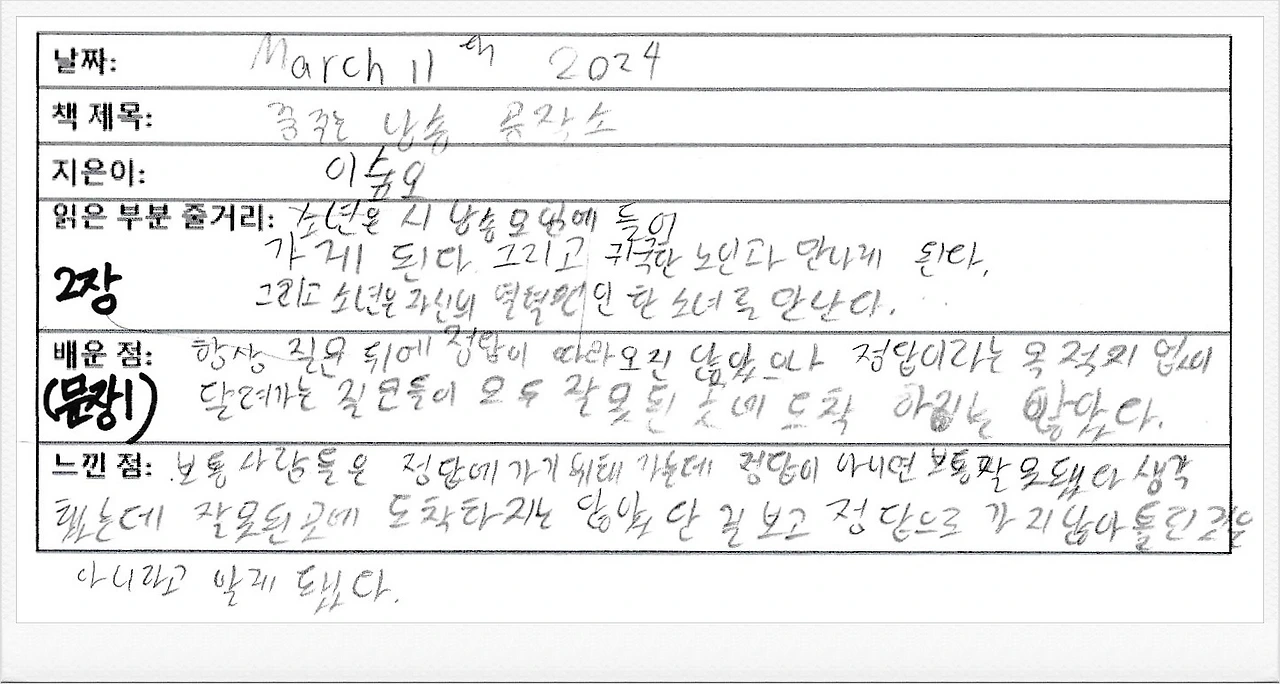 날짜: March 11th 2024
책 제목: 꿈꾸는 낭송 공작소
지은이: 이숲오
읽은 부분 줄거리: 소년은 시 낭송 모임에 들어
가게 된다. 그리고 귀국한 노인과 만나게 된다.
2장
그리고 소년은 자신의 열혈팬인 한 소녀를 만난다.
배운 점: 항상 질문 뒤에 정답이 따라오진 않았으나 정답이라는 목적지 없이
(문장1) 달려가는 질문들이 모두 잘못된 곳에 도착 하지는 않았다.
느낀 점: 보통 사람들은 정답에 가기 위해 가는데 정답이 아니면 보통 잘못됐다 생각
했는데 잘못된곳에 도착하지는 않았 단 걸 보고 정답으로 가지 않아 틀린 것은
아니라고 알게 됐다.